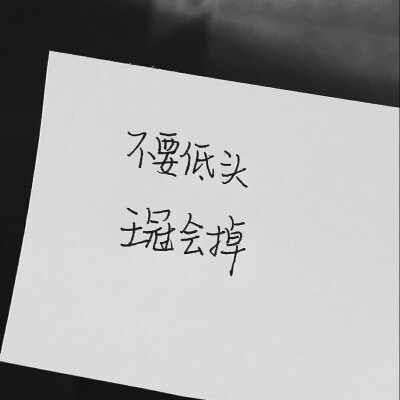 不要低头
王冠会掉